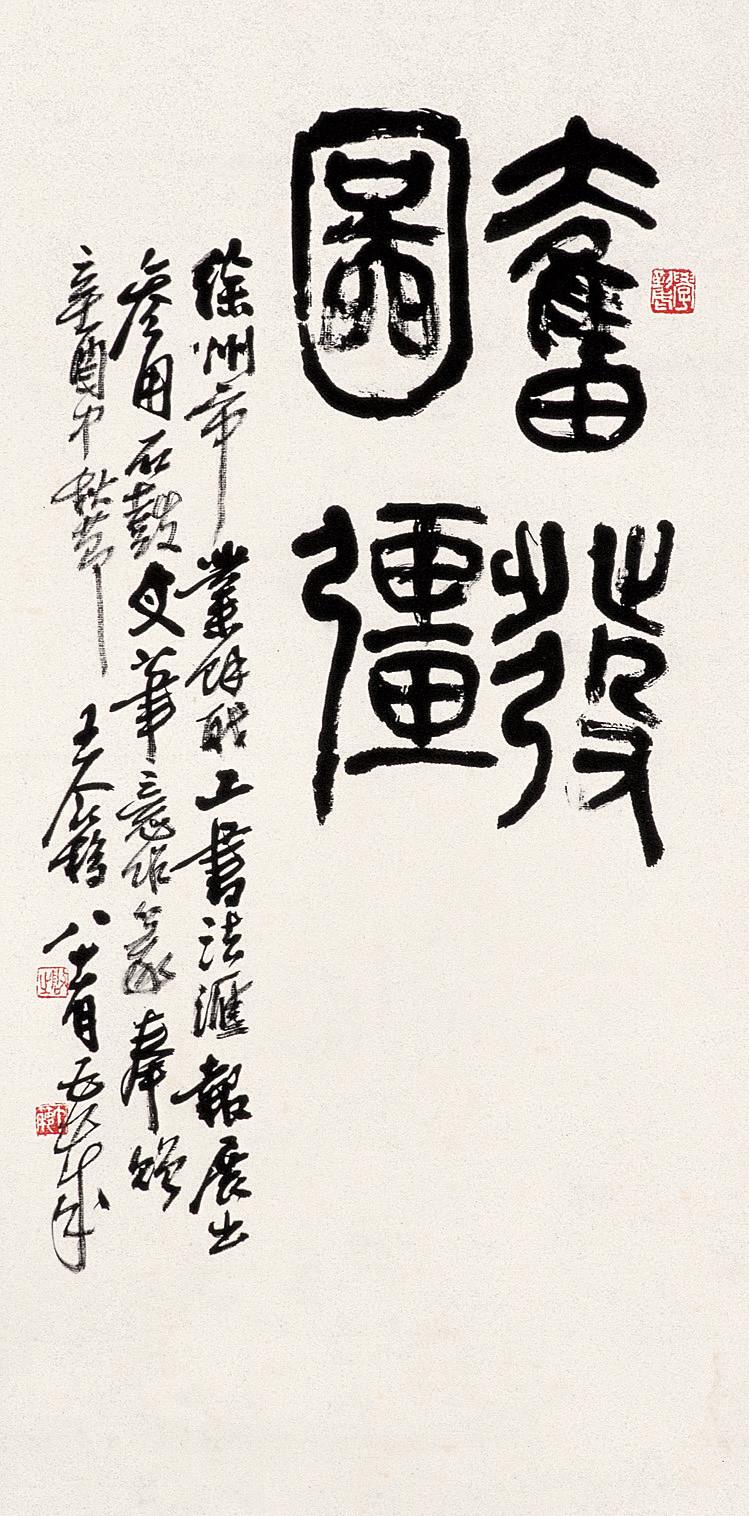 奮發
圖彊
徐州市業餘職工書法滙報展出
參用石鼓文筆意作篆奉贈
辛酉中秋節 王个簃八十有五歲